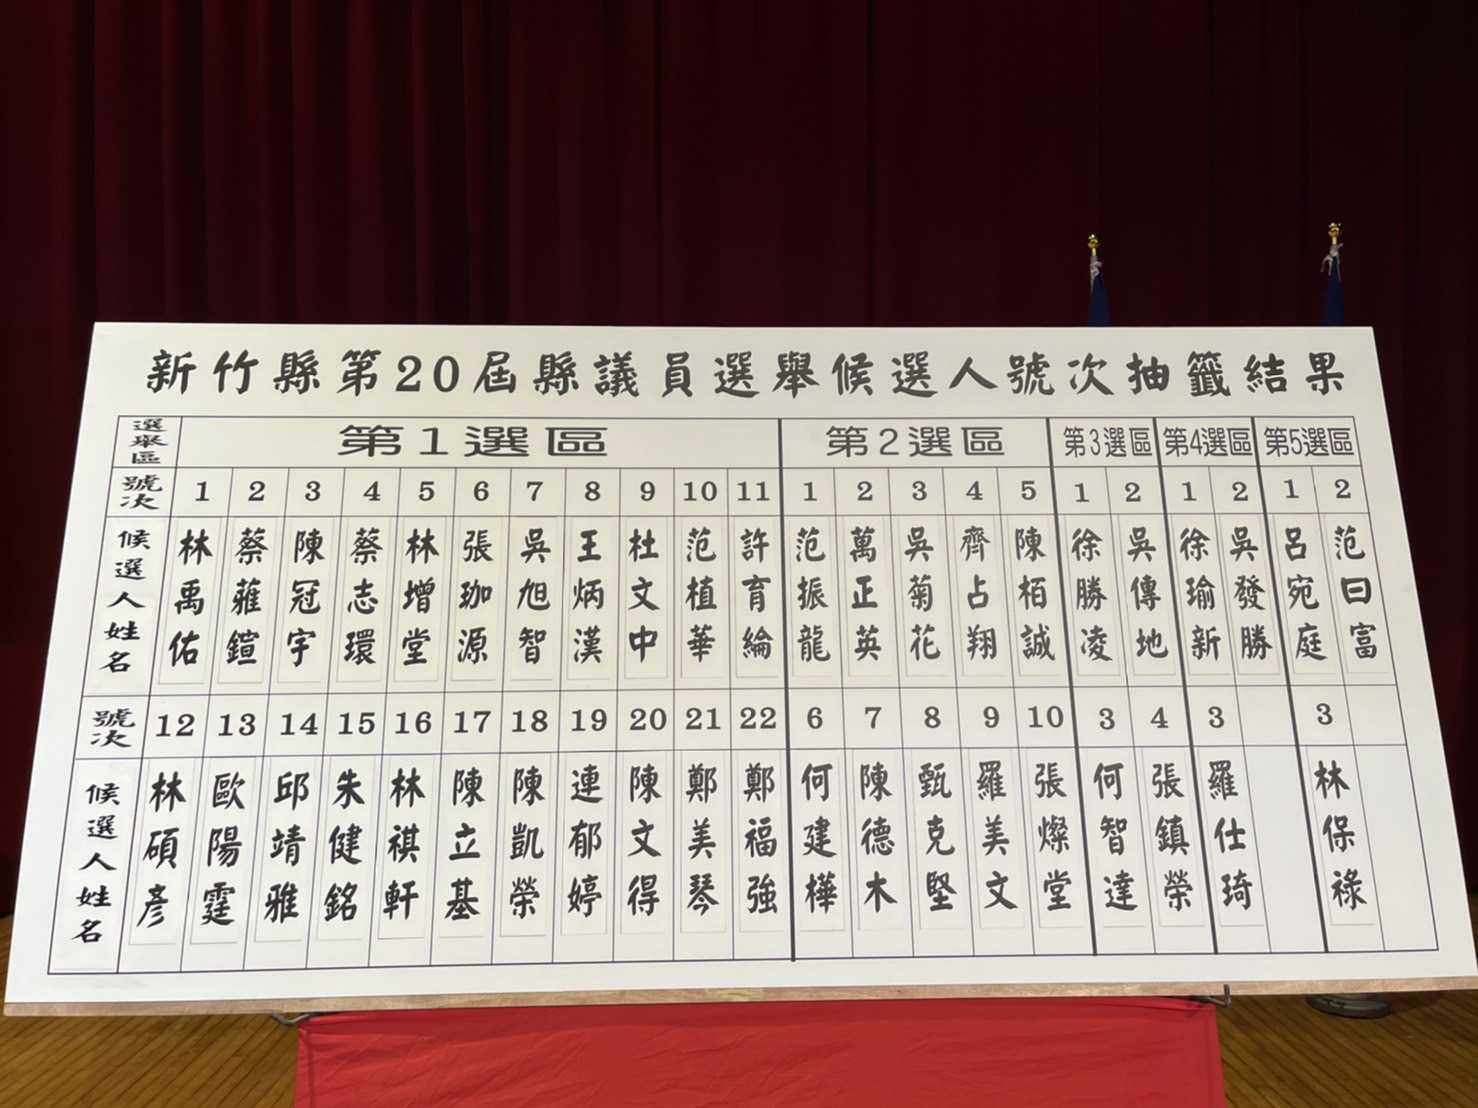 新竹縣第20屆縣議員選舉候選人號次抽籤結果
選舉區 第1選區 第2選區 第3選區 第4選區 第5選區
號次 1 2 3 4 5 6 7 8 9 10 11 1 2 3 4 5 1 2 1 2 1 2
候選人姓名 林禹佑 蔡蕥鍹 陳冠宇 蔡志環 林增堂 張珈源 吳旭智 王炳漢 杜文中 范植華 許育綸 范振龍 萬正英 吳菊花 齊占翔 陳栢誠 徐勝凌 吳傳地 徐瑜新 吳發勝 呂宛庭 范曰富
號次 12 13 14 15 16 17 18 19 20 21 22 6 7 8 9 10 3 4 3 3
候選人姓名 林碩彥 歐陽霆 邱靖雅 朱健銘 林祺軒 陳立基 陳凱榮 連郁婷 陳文得 鄭美琴 鄭福強 何建樺 陳德木 甄克堅 羅美文 張燦堂 何智達 張鎮榮 羅仕琦 林保祿